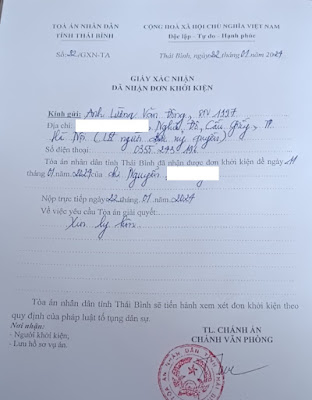 TOÀ ÁN NHÂN DÂN
TỈNH THÁI BÌNH
CỘNG HOÀ XÃ HỘI CHỦ NGHĨA VIỆT NAM
Độc lập - Tự do - Hạnh phúc
Số: 22/GXN-TA
Thái Bình, ngày 22 tháng 01 năm 2024
GIẤY XÁC NHẬN
ĐÃ NHẬN ĐƠN KHỞI KIỆN
Kính gửi: Anh Lường Văn, SN 1997
Địa chỉ: Nghĩa Đô, Cầu Giấy, TP.
Hà Nội (Là người uỷ quyền)
Số điện thoại: 0355
Toà án nhân dân tỉnh Thái Bình đã nhận được đơn khởi kiện đề ngày 11
tháng 01 năm 2024 của chị Nguyễn
Nộp trực tiếp ngày 22 tháng 01 năm 2024
Về việc yêu cầu Tòa án giải quyết
Xin ly hôn
Tòa án nhân dân tỉnh Thái Bình sẽ tiến hành xem xét đơn khởi kiện theo
quy định của pháp luật tố tụng dân sự.
Nơi nhận:
- Người khởi kiện;
- Lưu hồ sơ vụ án.
TL. CHÁNH ÁN
CHÁNH VĂN PHÒNG